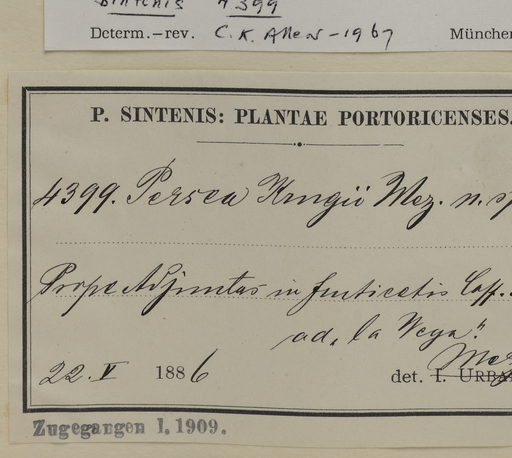 Sintenis 4399
Determ.-rev. C. K. Allen - 1967 München
P. SINTENIS: PLANTAE PORTORICENSES.
4399. Persea Krugii Mez. n. sp
Prope Adjuntas in fruticetis Coff.
ad „la Vega“
Mez
22. V 1886 det. I. URBA
Zugegangen 1. 1909.